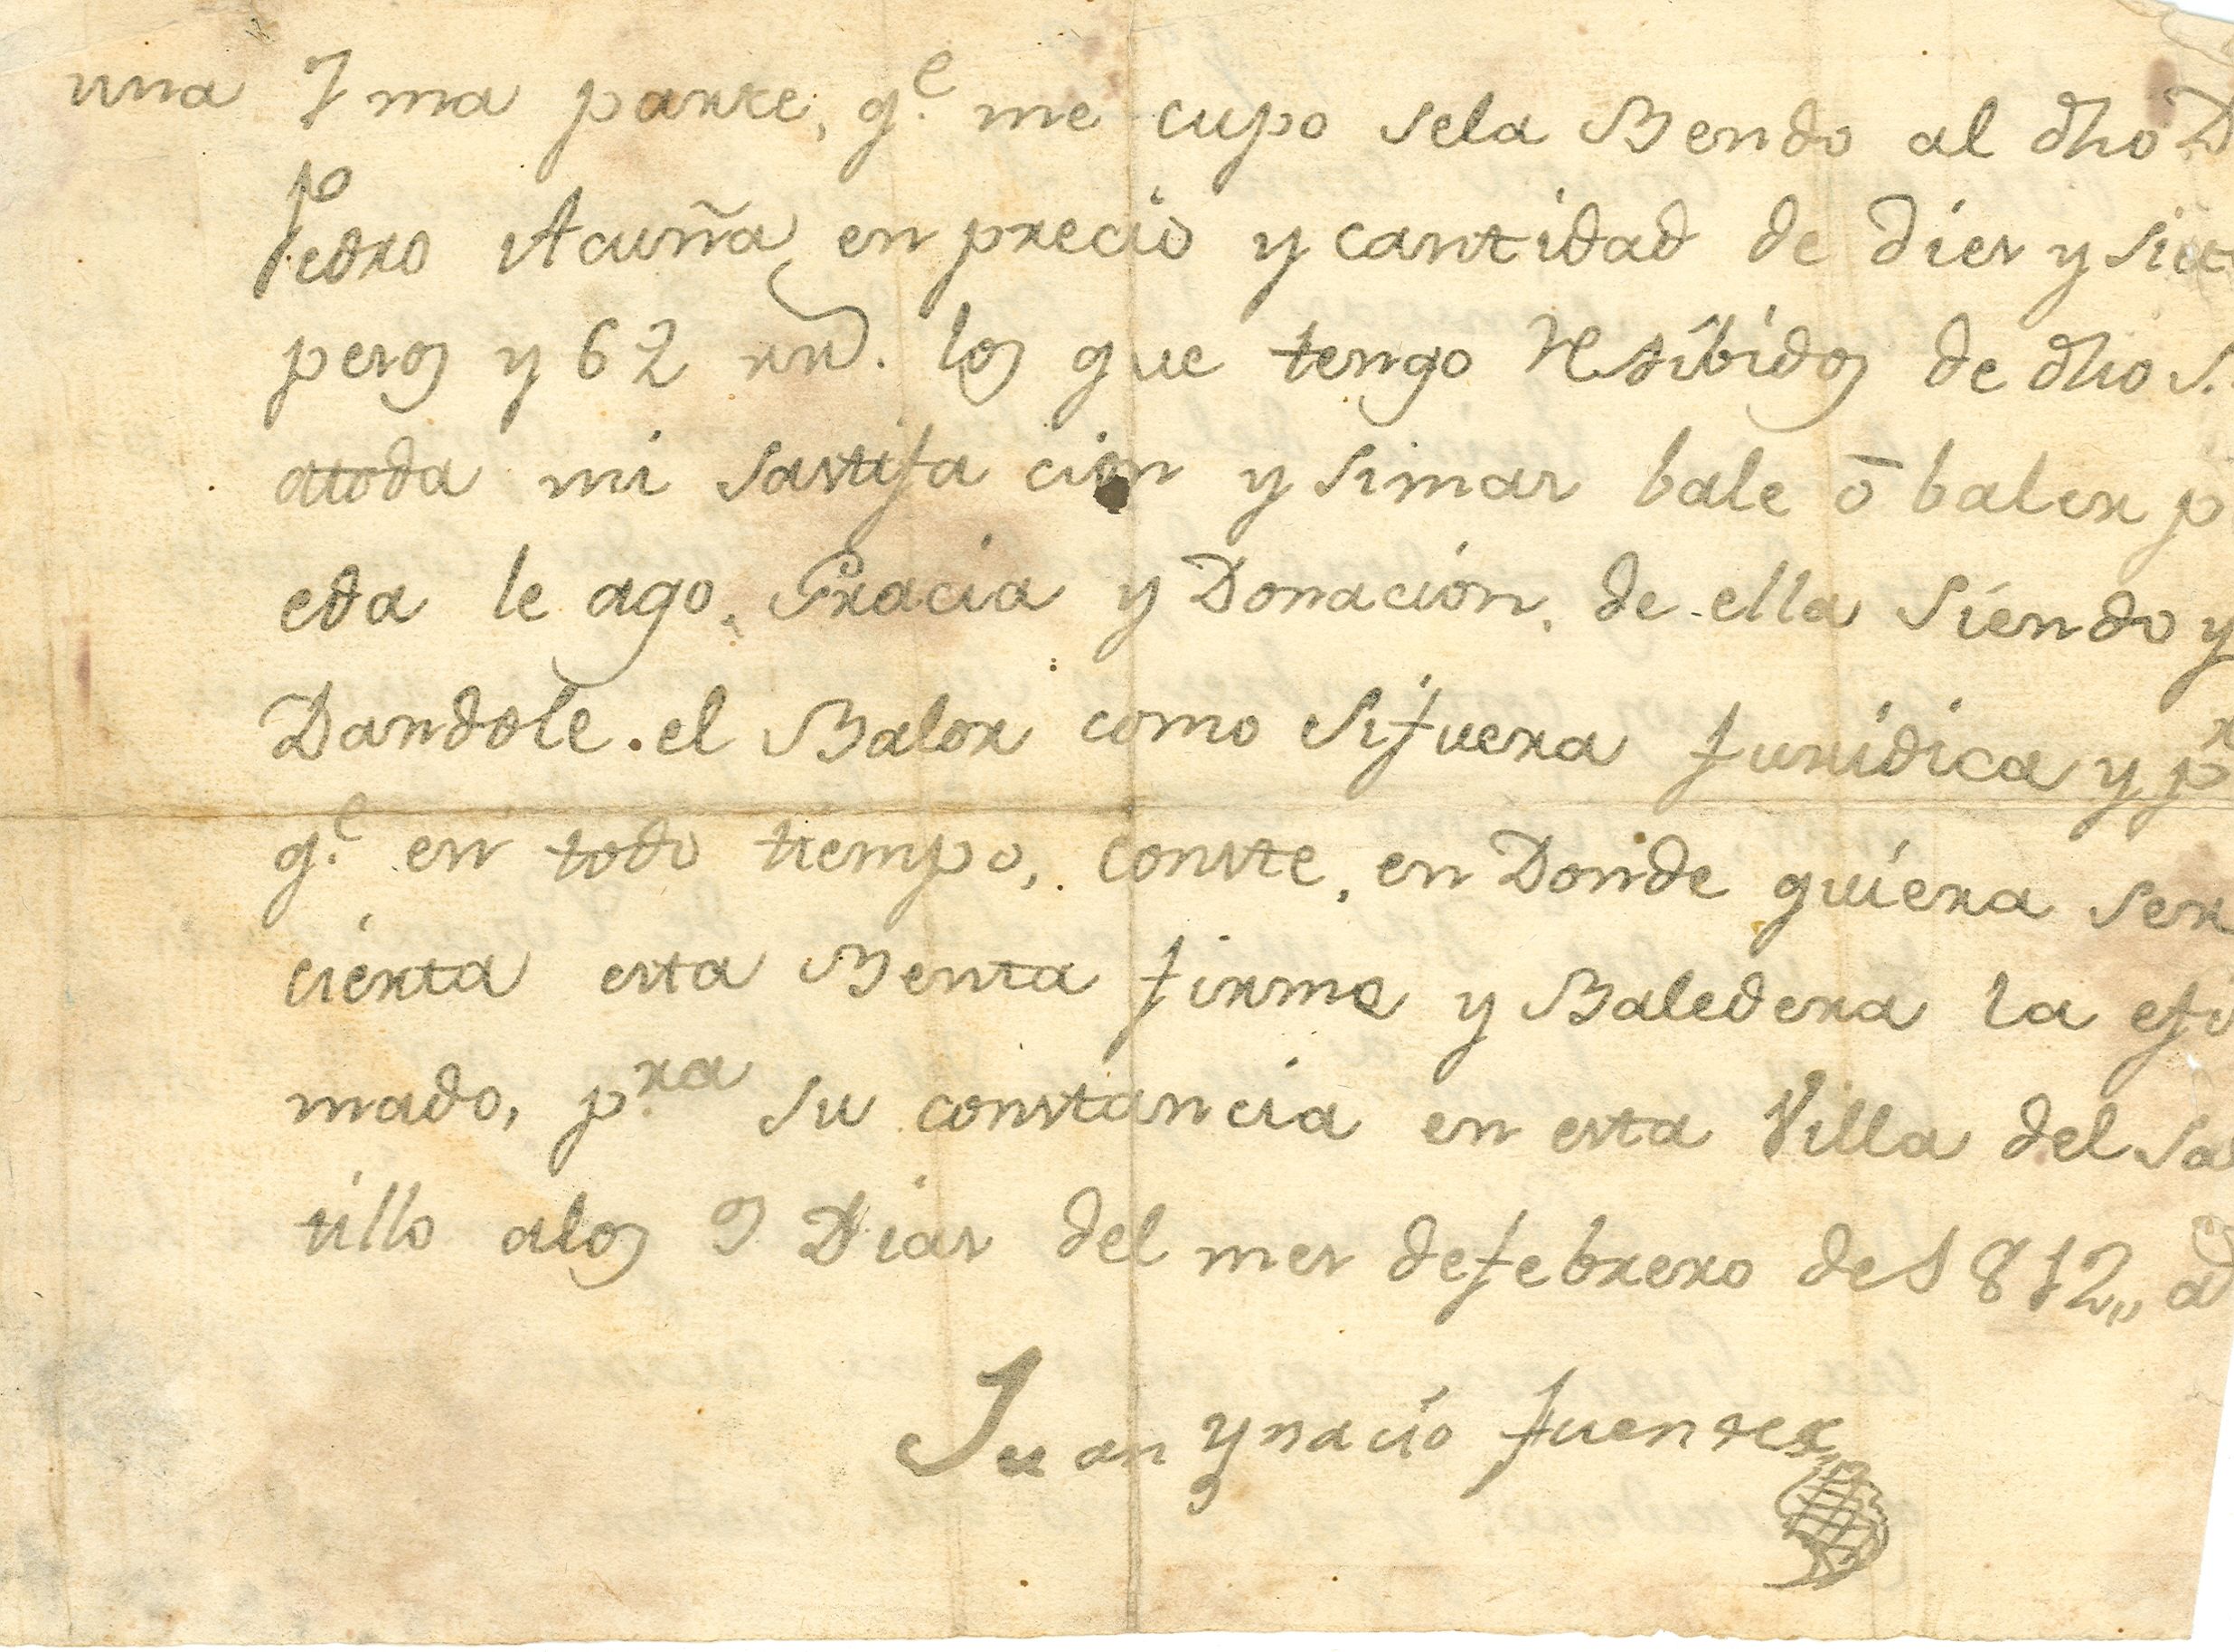 una 7ma parte, q.e me cupo sela Bendo al dho D
Pedro Acuña en precio y cantidad de dies y siet
pesos y 62 rr.s los que tengo Resibidos de dho S.
atoda mi sastifa cion y simas bale ō baler p
eda le ago, Gracia y Donacion, de ella siendo y
Dandole el Balor como sifuera furidica y p
q.e en todo tiempo, conste, en Donde quiera ser
cierta esta Benta firme y Baledera la efir
mado, p.ra su constancia en esta Villa del Sa
tillo alos 9 Dias del mes defebrero de 1812,, a
Juan Ygnacio fuentes